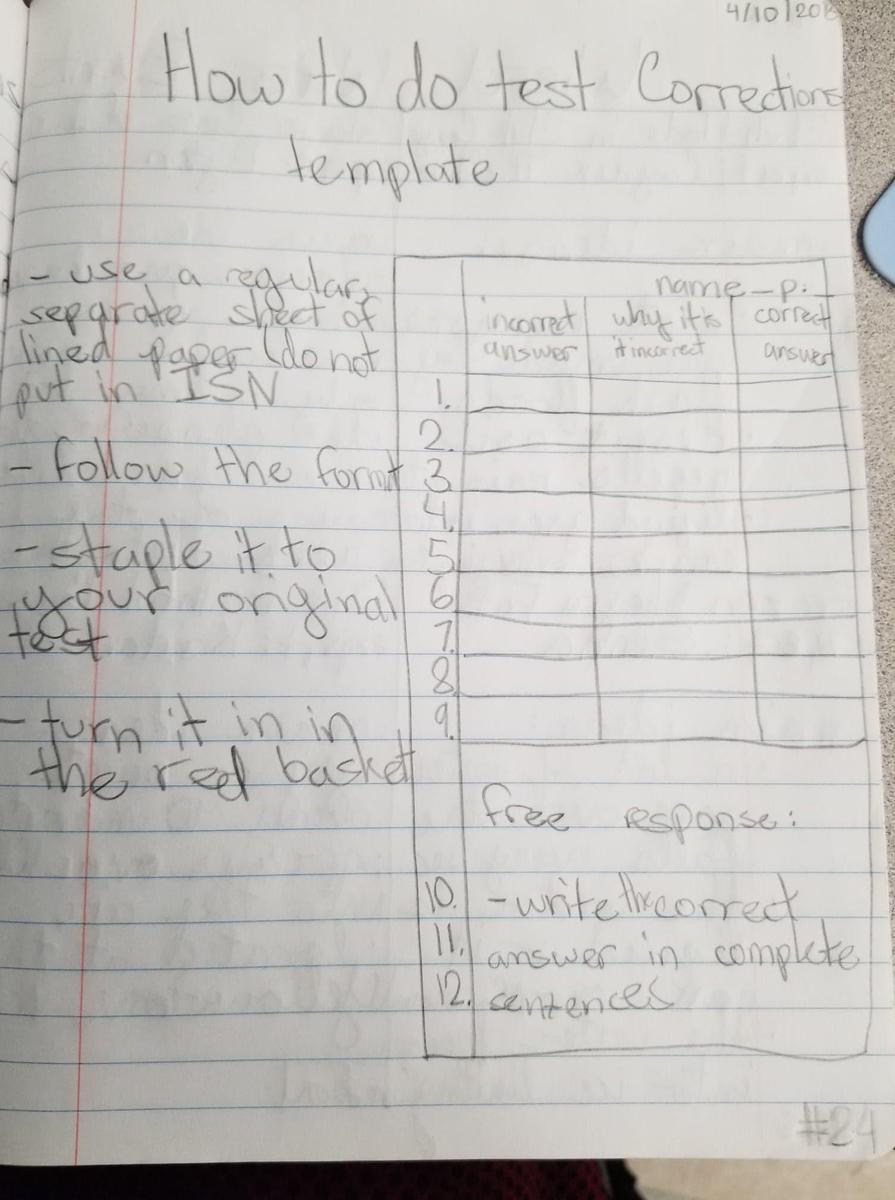 4/10/20
How to do test Corrections
template
- use a regular,
separate sheet of
lined paper (do not
put in ISN
- follow the formt
- staple it to
your original
test
- turn it in in
the red basket
name - p.
incorrect answer
why it is it incorrect
correct answer
1.
2.
3
4.
5
6
7.
8
9.
free response:
10. - write the correct
11. answer in complete
12. sentences
#24